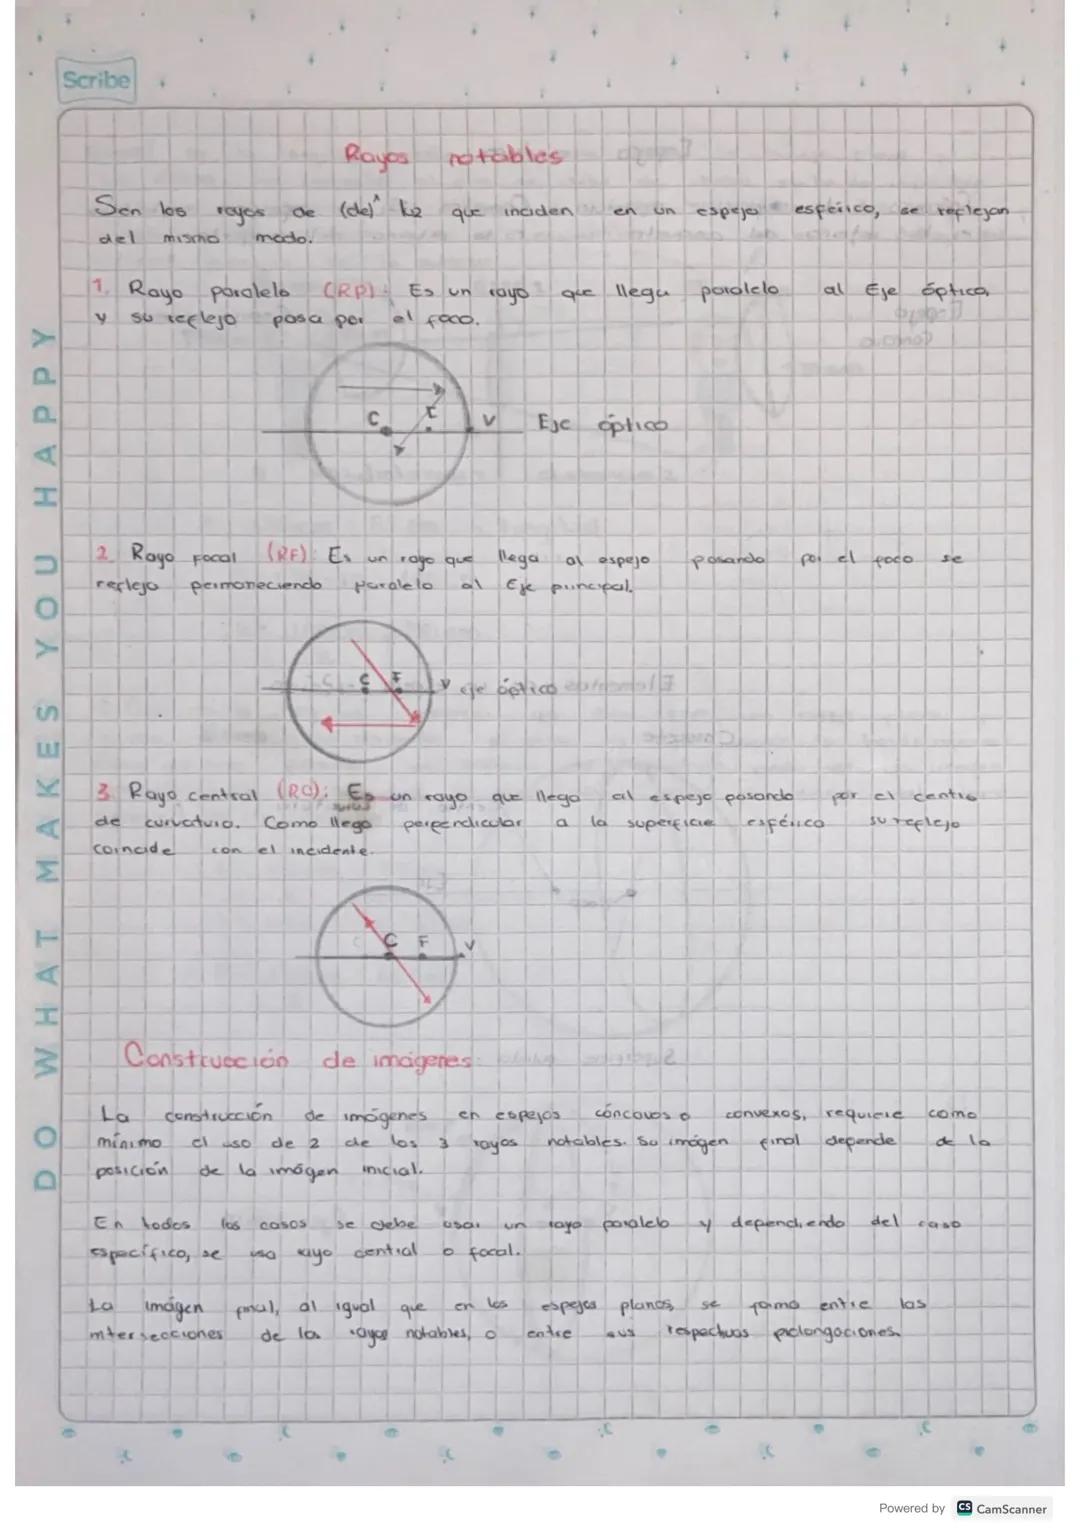 Scribe
Rayos notables
Son los rayos de (de) que inciden en un espejo esférico, se reflejan
del mismo modo.
1. Rayo paralelo (RP): Es un rayo que llega paralelo al Eje óptico,
y su reflejo pasa por el foco.
C F V Eje óptico
2. Rayo Focal (RF): Es un rayo que llega al espejo pasando por el foco se
refleja permaneciendo paralelo al Eje principal.
C F V eje óptico
3. Rayo central (RC): Es un rayo que llega al espejo pasando por el centro
de curvatura. Como llega perpendicular a la superficie esférica su reflejo
coincide con el incidente.
C F V
Construcción de imágenes
La construcción de imágenes en espejos cóncavos o convexos, requiere como
mínimo el uso de 2 de los 3 rayos notables. Su imágen final depende de la
posición de la imágen inicial.
En todos los casos se debe usar un rayo paralelo y dependiendo del caso
específico, se usa rayo central o focal.
La imágen final, al igual que en los espejos planos, se forma entre las
intersecciones de los rayos notables, o entre sus respectivas prolongaciones.
DO WHAT MAKES YOU HAPPY
Powered by CS CamScanner